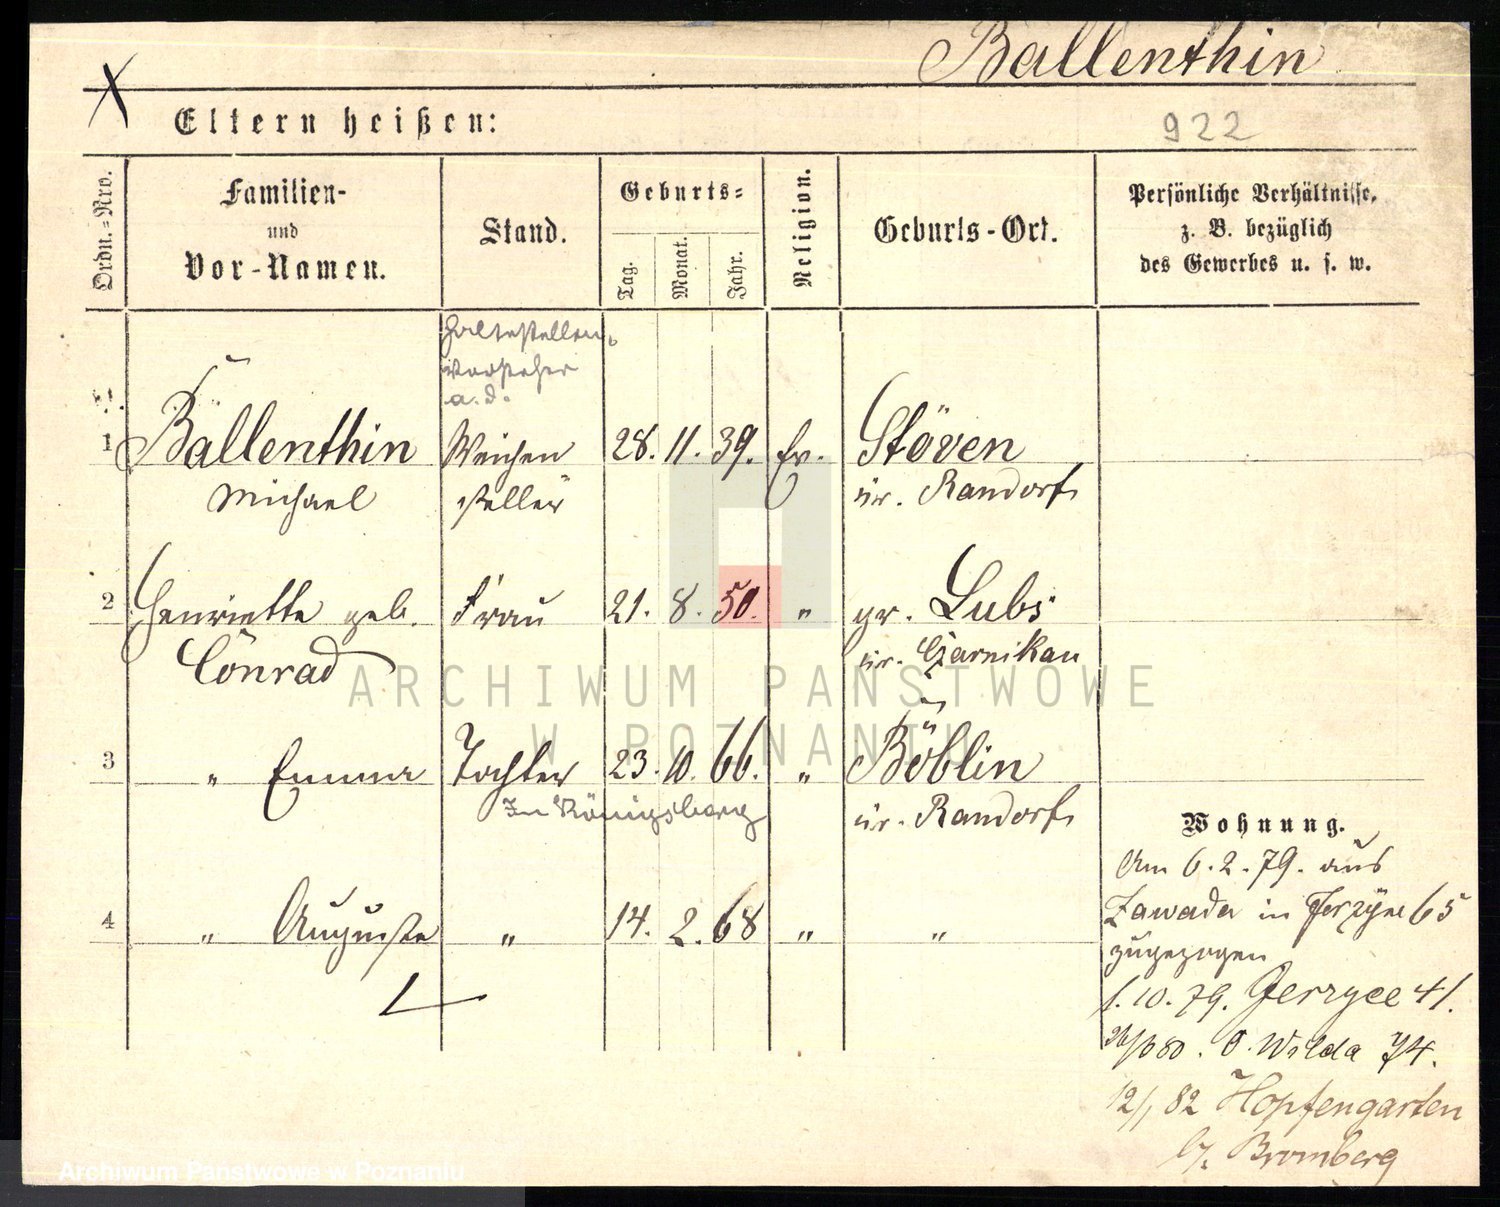 Ballenthin
Eltern heißen:
922
Ordn.-Nro.
Familien-
und
Vor-Namen.
Stand.
Geburts-
Tag.
Monat.
Jahr.
Religion.
Geburts-Ort.
Persönliche Verhältnisse,
z. B. bezüglich
des Gewerbes u. s. w.
Haltestellen-
vorsteher
a. D.
1 Ballenthin Weichen 28. 11. 39. Ev. Stöven
Michael steller Kr. Randorf
2 Henriette geb. Frau 21. 8. 50. " gr. Lubs
Conrad Kr. Czarnikau
3 " Emma Tochter 23. 10. 66. " Böblin
In Königsberg Kr. Randorf
Wohnung.
Am 6. 2. 79. aus
4 " Auguste " 14. 2. 68 " "
Zawada in Jerzyce 65
zugezogen
1. 10. 79. Jerzyce 41.
80. O. Wilda 74.
12/1 82 Hopfengarten
b/. Bromberg
ARCHIWUM PAŃSTWOWE
W POZNANIU
Archiwum Państwowe w Poznaniu